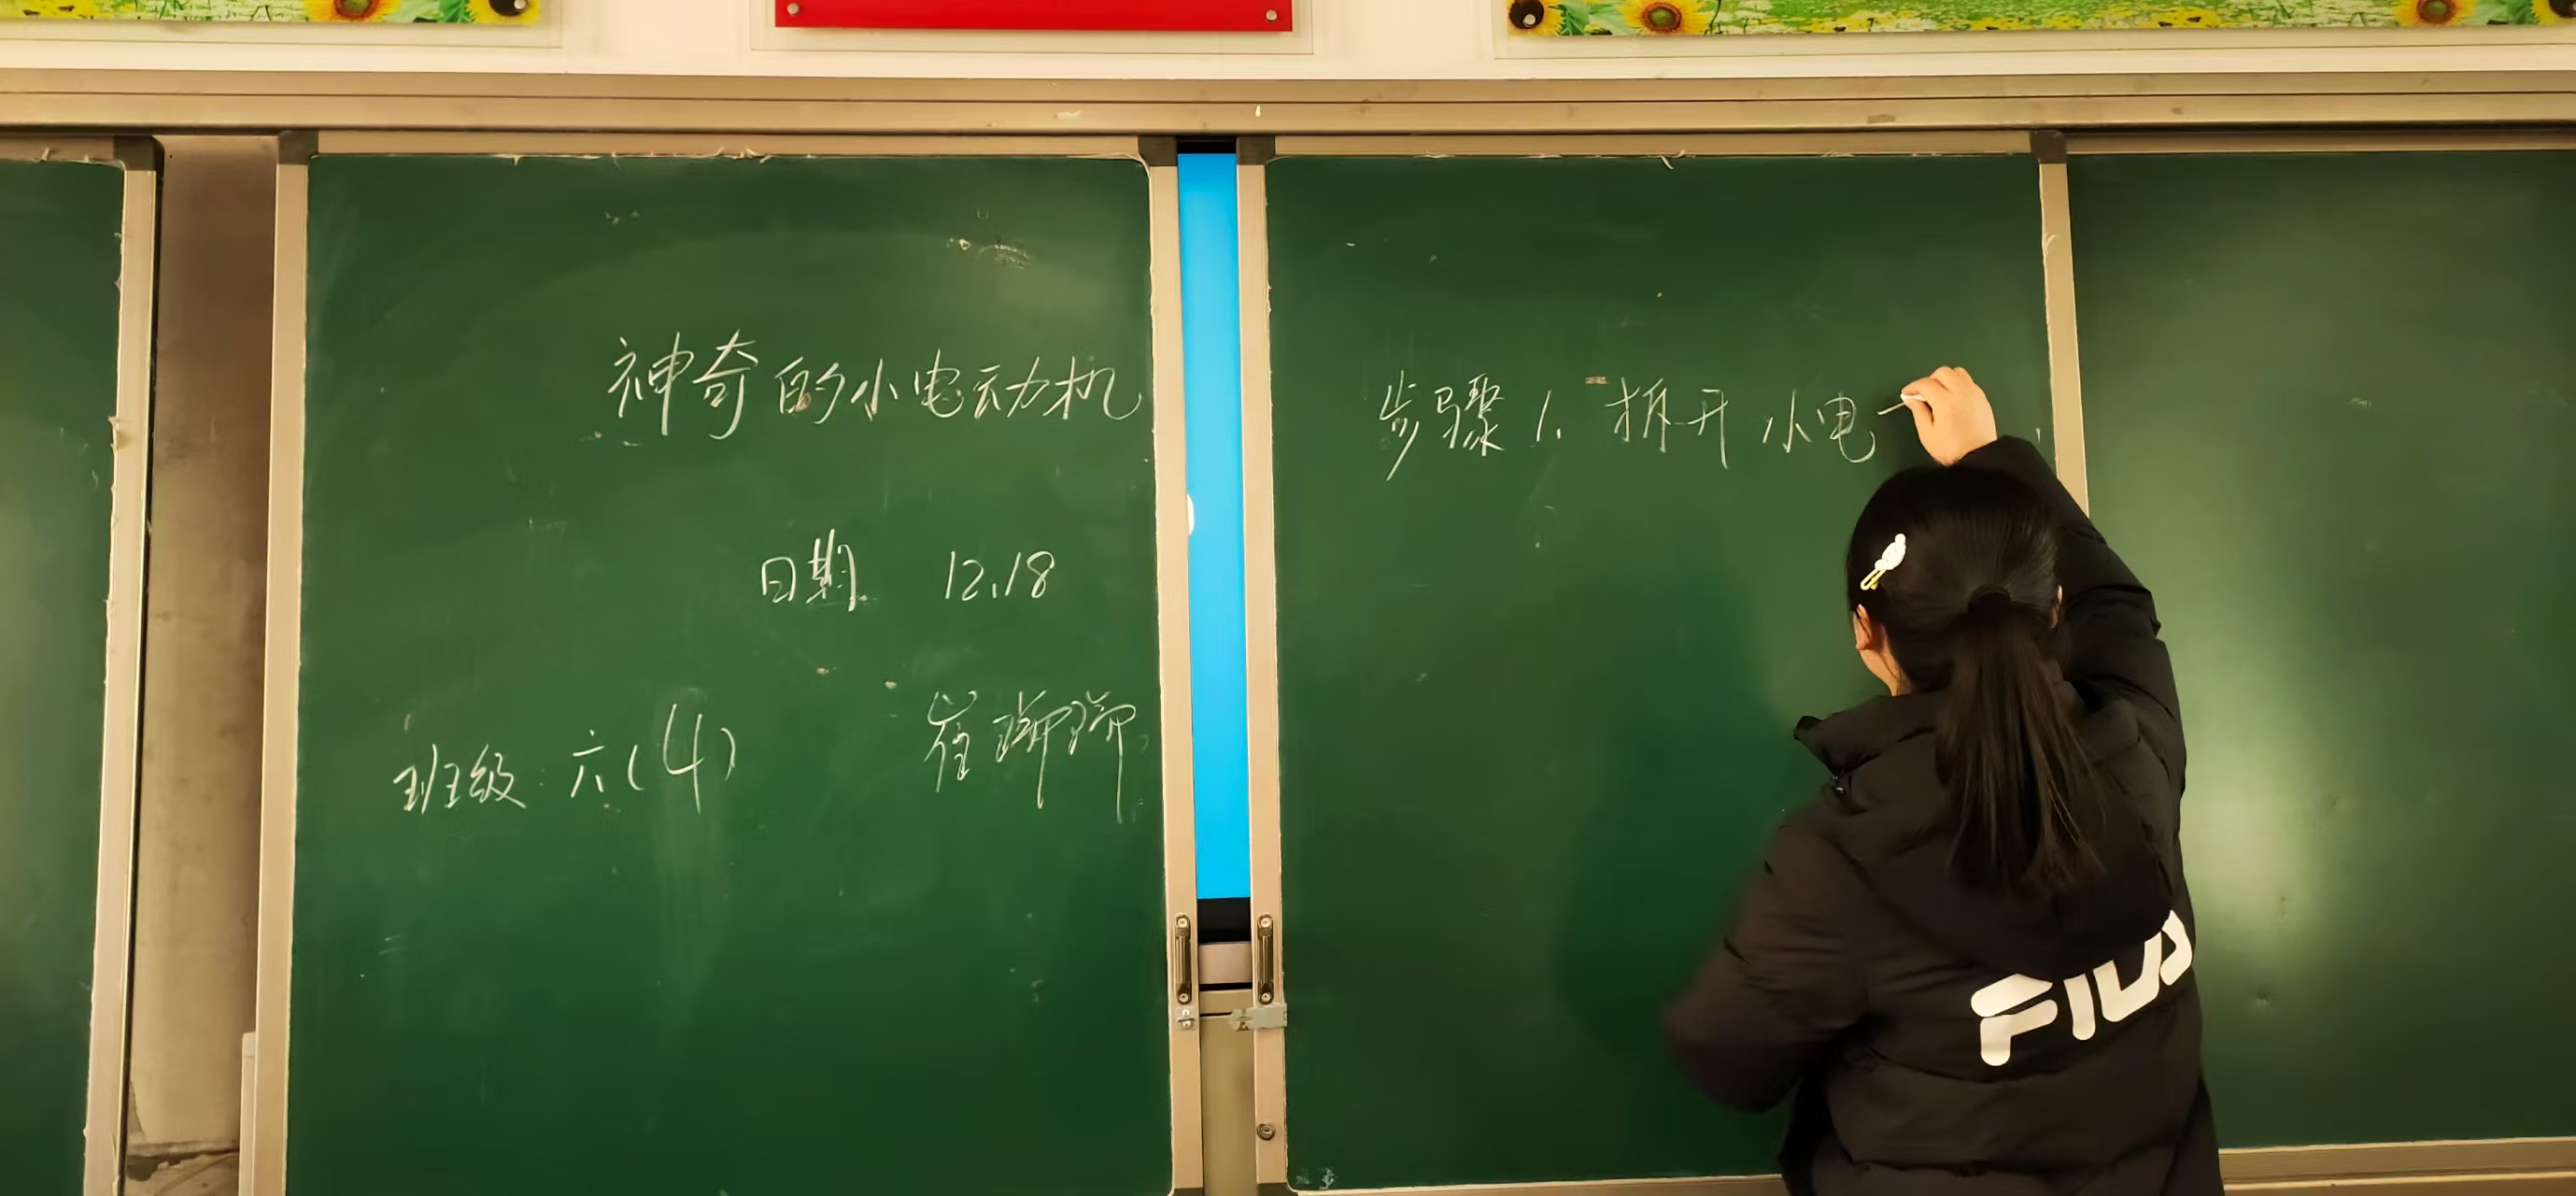 神奇的小电动机
日期 12.18
班级:六(4)
崔
步骤1. 拆开小电
FILA